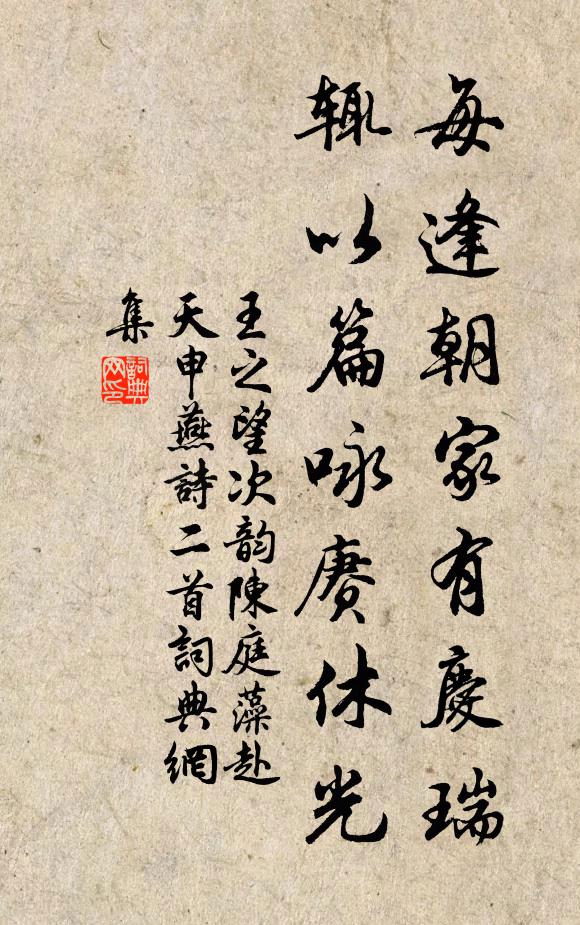 每逢朝家有慶瑞
輒以篇咏賡休光
王之望次韵陳庭藻赴
天申燕詩二首詞典網
集
詞典网印